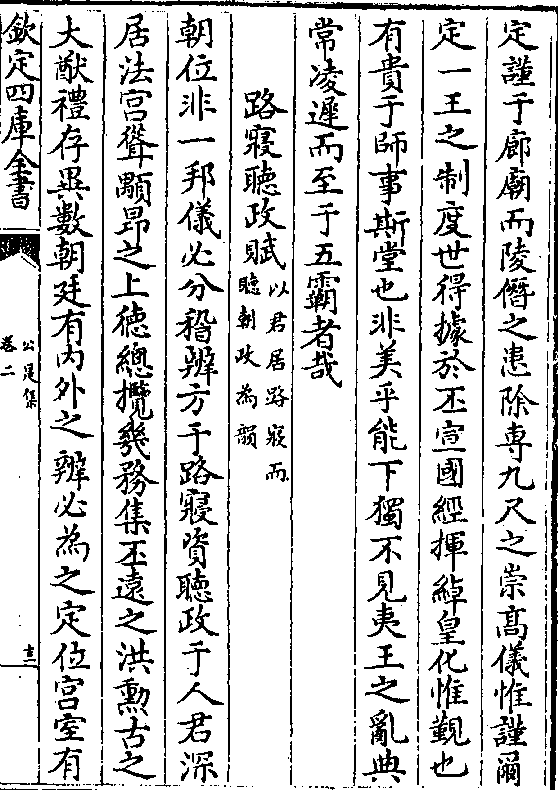 定謹于廊廟而陵僭之患除専九尺之崇髙儀惟謹爾
定一王之制度世得據於丕宣國經揮綽皇化惟觐也
有貴于師事斯堂也非美乎能下獨不見夷王之亂典
常凌遲而至于五霸者哉
路寢聽政賦以君居路寢而聽朝政為韻
朝位非一邦儀必分稽辨方于路寢資聽政于人君深
居法宫聳顒昂之上徳總攬幾務集丕遠之洪勲古之
大猷禮存異數朝廷有内外之辨必為之定位宫室有
欽定四庫全書
公是集
卷二